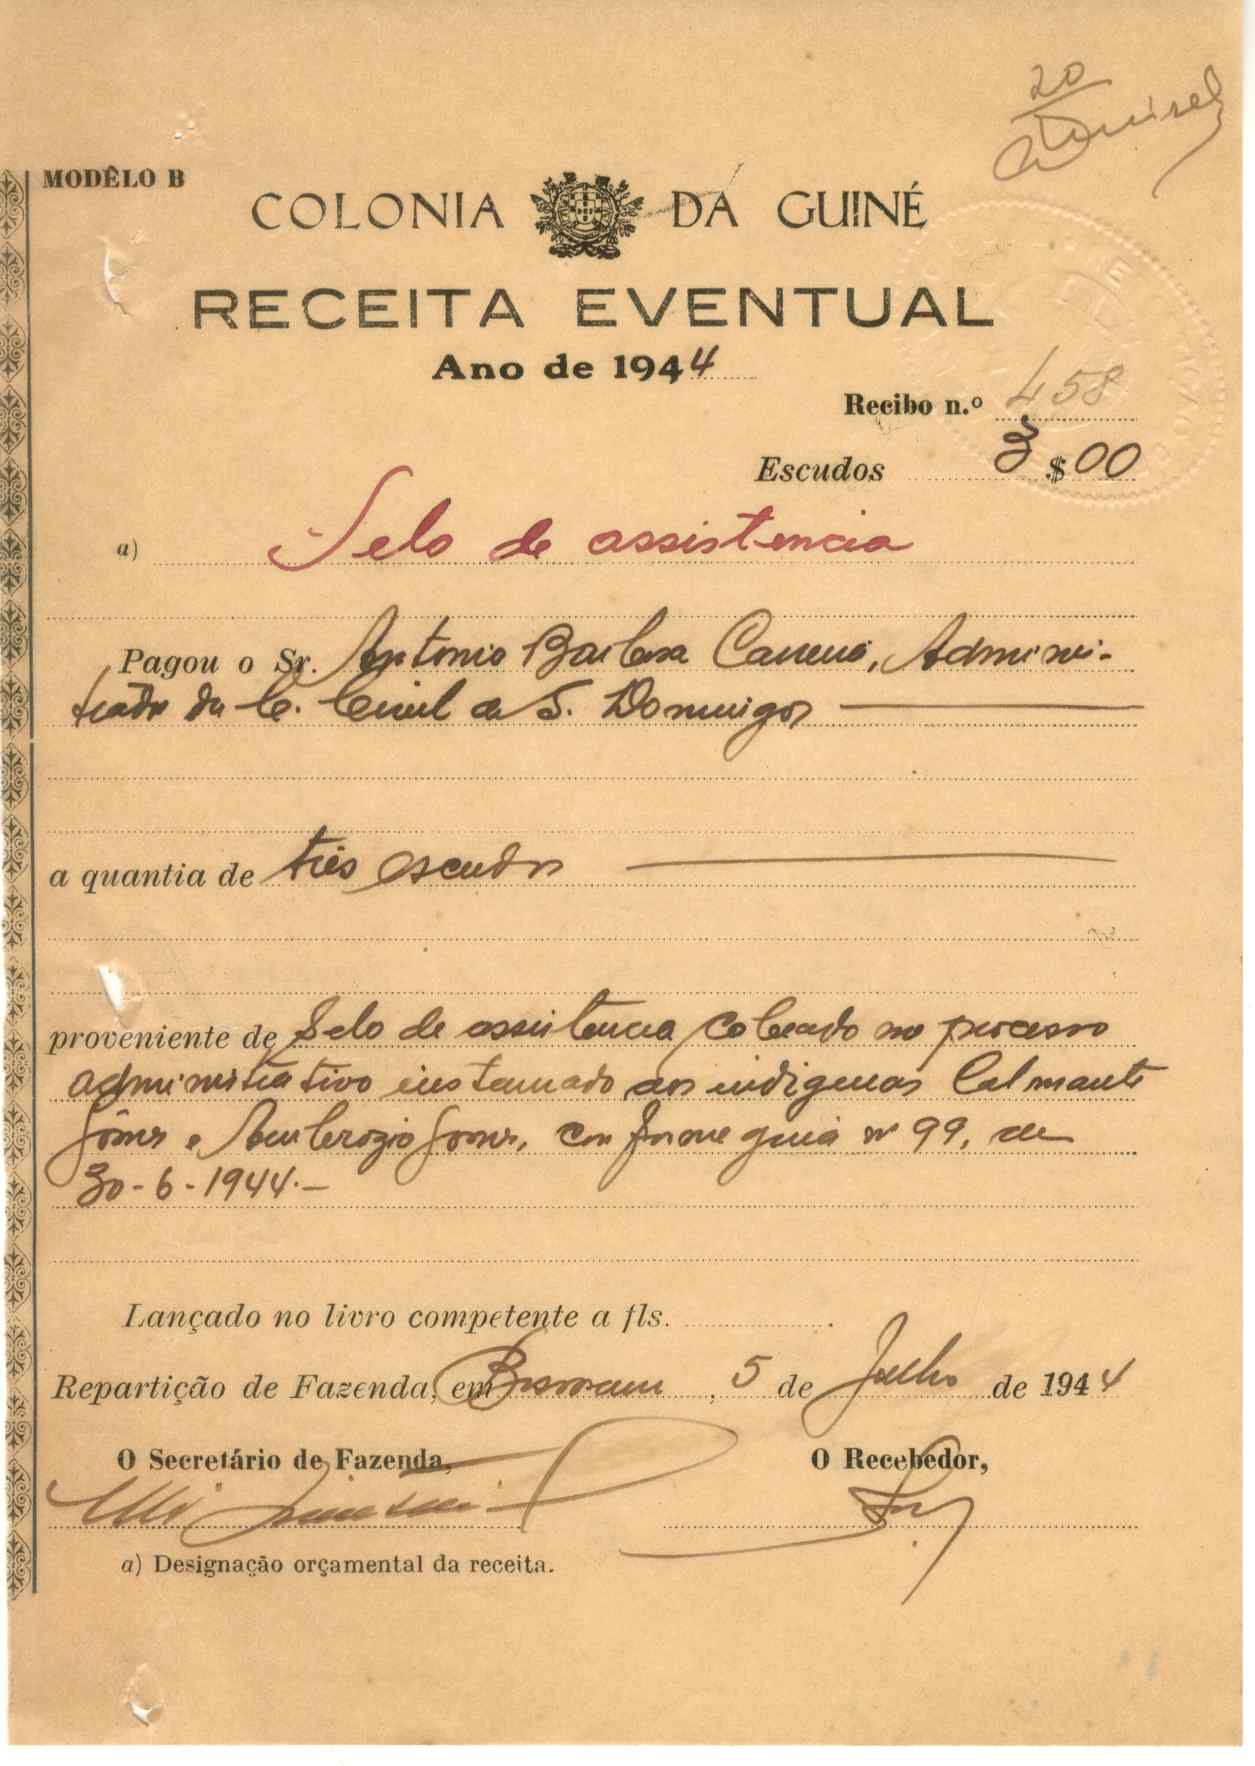 20
MODÊLO B
COLONIA DA GUINÉ
RECEITA EVENTUAL
Ano de 1944
Recibo n.º 458
Escudos 3$00
a) Selo de assistencia
Pagou o Sr. Antonio Barbosa Carreira, Adminis-
trador da C. Civil de S. Domingos
a quantia de três escudos
proveniente de Selo de assistencia cobrado no processo
administrativo instaurado aos indigenas
Gomes e Ambrozio Gomes, conforme guia nº 99, de
30-6-1944.-
Lançado no livro competente a fls.
Repartição de Fazenda, em , 5 de Julho de 1944
O Secretário de Fazenda,
O Recebedor,
a) Designação orçamental da receita.